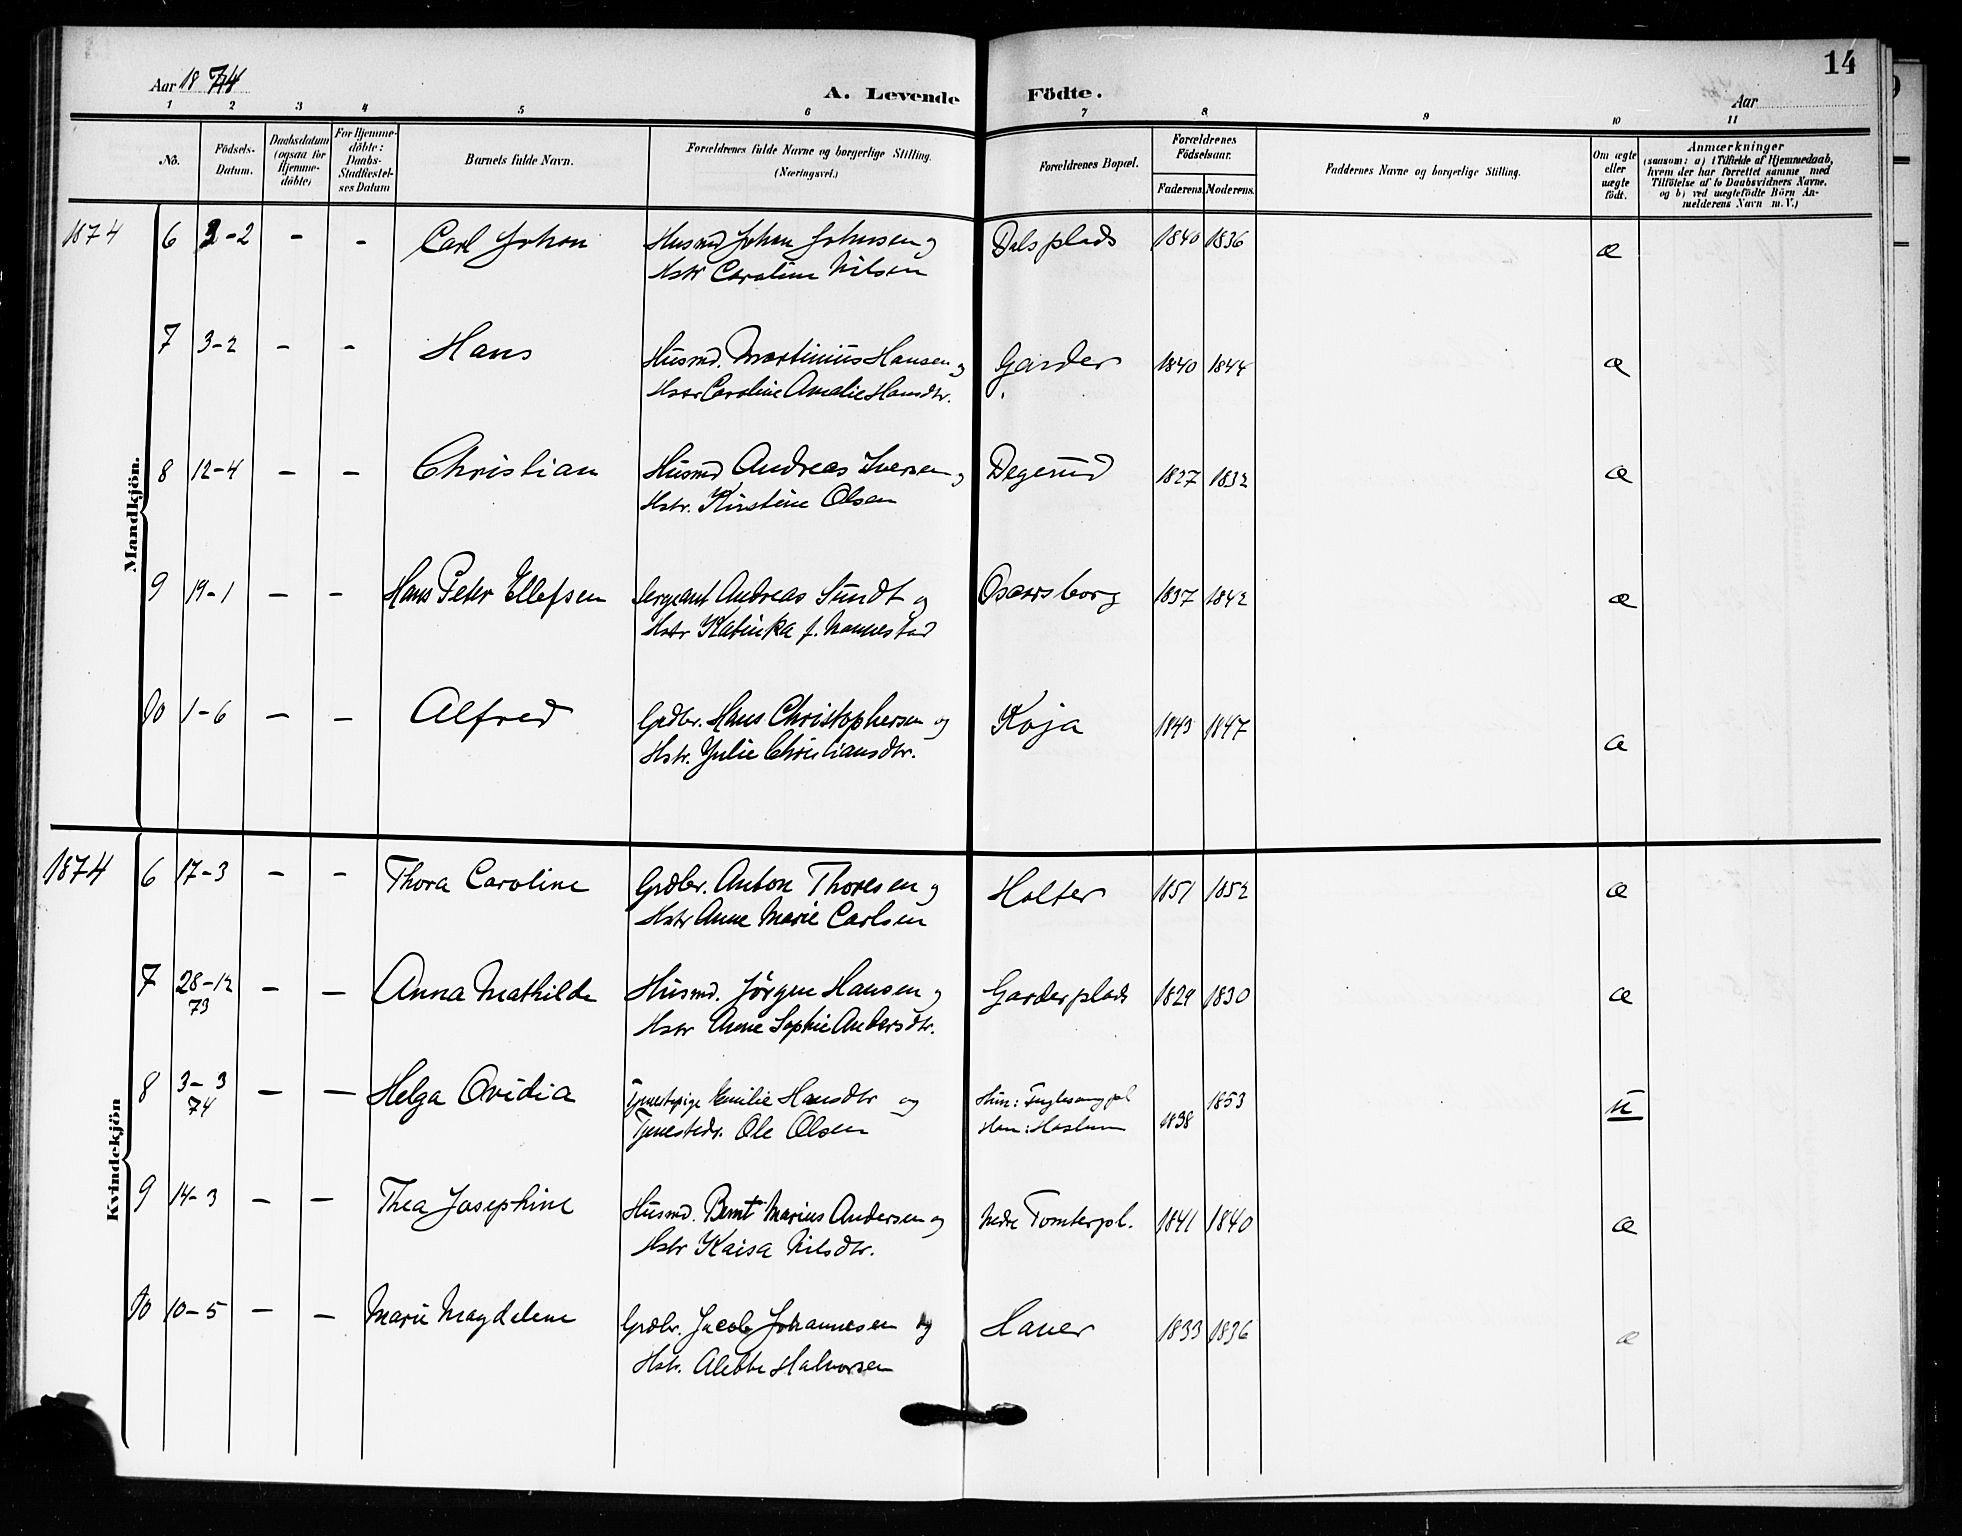 14
Aar 1874
A. Levende
Födte.
Aar
1 2 3 4 5 6 7 8 9 10 11
No.
Födsels-
Datum.
Daabsdatum
(ogsaa for
Hjemme-
döbte)
For Hjemme-
döbte:
Daabs-
Stadfæstel-
ses Datum
Barnets fulde Navn.
Forældrenes fulde Navne og borgerlige Stilling.
(Næringsvei.)
Forældrenes Bopæl.
Forældrenes
Födselsaar.
Faderens. Moderens.
Faddernes Navne og borgerlige Stilling.
Om ægte
eller
uægte
födt.
Anmærkninger
(saasom: a) i Tilfælde af Hjemmedaab,
hvem der har forrettet samme, med
Tilföielse af to Daabsvidners Navne.
og b) ved uægtefödte Börn An-
melderens Navn m.V.)
Mandkjön.
1874 6 2-2 - - Carl Johan Husmd Johan Johnsen og Dalsplads 1840 1836 æ
Hstr Caroline Nilsen
7 3-2 - - Hans Husmd. Martinius Hansen og Garder 1840 1844 æ
Hstr Caroline Amalie Hansdtr.
8 12-4 - - Christian Husmd Andreas Iversen og Degerud 1827 1832 æ
Hstr. Kirstine Olsen
9 19-1 - - Hans Peter Ellefsen Sergeant Andreas Sundt og Oscarsborg 1837 1842 æ
Hstr Katinka f. Nannestad
10 1-6 - - Alfred Grdbr. Hans Christophersen og Koja 1843 1847 æ
Hstr. Julie Christiansdtr.
Kvindekjön
1874 6 17-3 - - Thora Caroline Grdbr. Anton Thoresen og Holter 1851 1852 æ
Hstr Anne Marie Carlsen
7 28-12 - - Anna Mathilde Husmd. Jörgen Hansen og Garderplads 1829 1830 æ
73 Hstr Anne Sophie Andersdtr.
8 3-3 - - Helga Ovidia Tjenestepige Emilie Hansdtr og Hun: Fuglesangpl 1853 u
74 Tjenestedr. Ole Olsen Han: Haslum 1838
9 14-3 - - Thea Josephine Husmd. Bernt Marius Andersen og Nedre Tomterpl. 1841 1840 æ
Hstr Kaisa Nilsdtr.
10 10-5 - - Marie Magdelene Grdbr. Jacob Johannesen og Haver 1833 1836 æ
Hstr. Alette Halvorsen